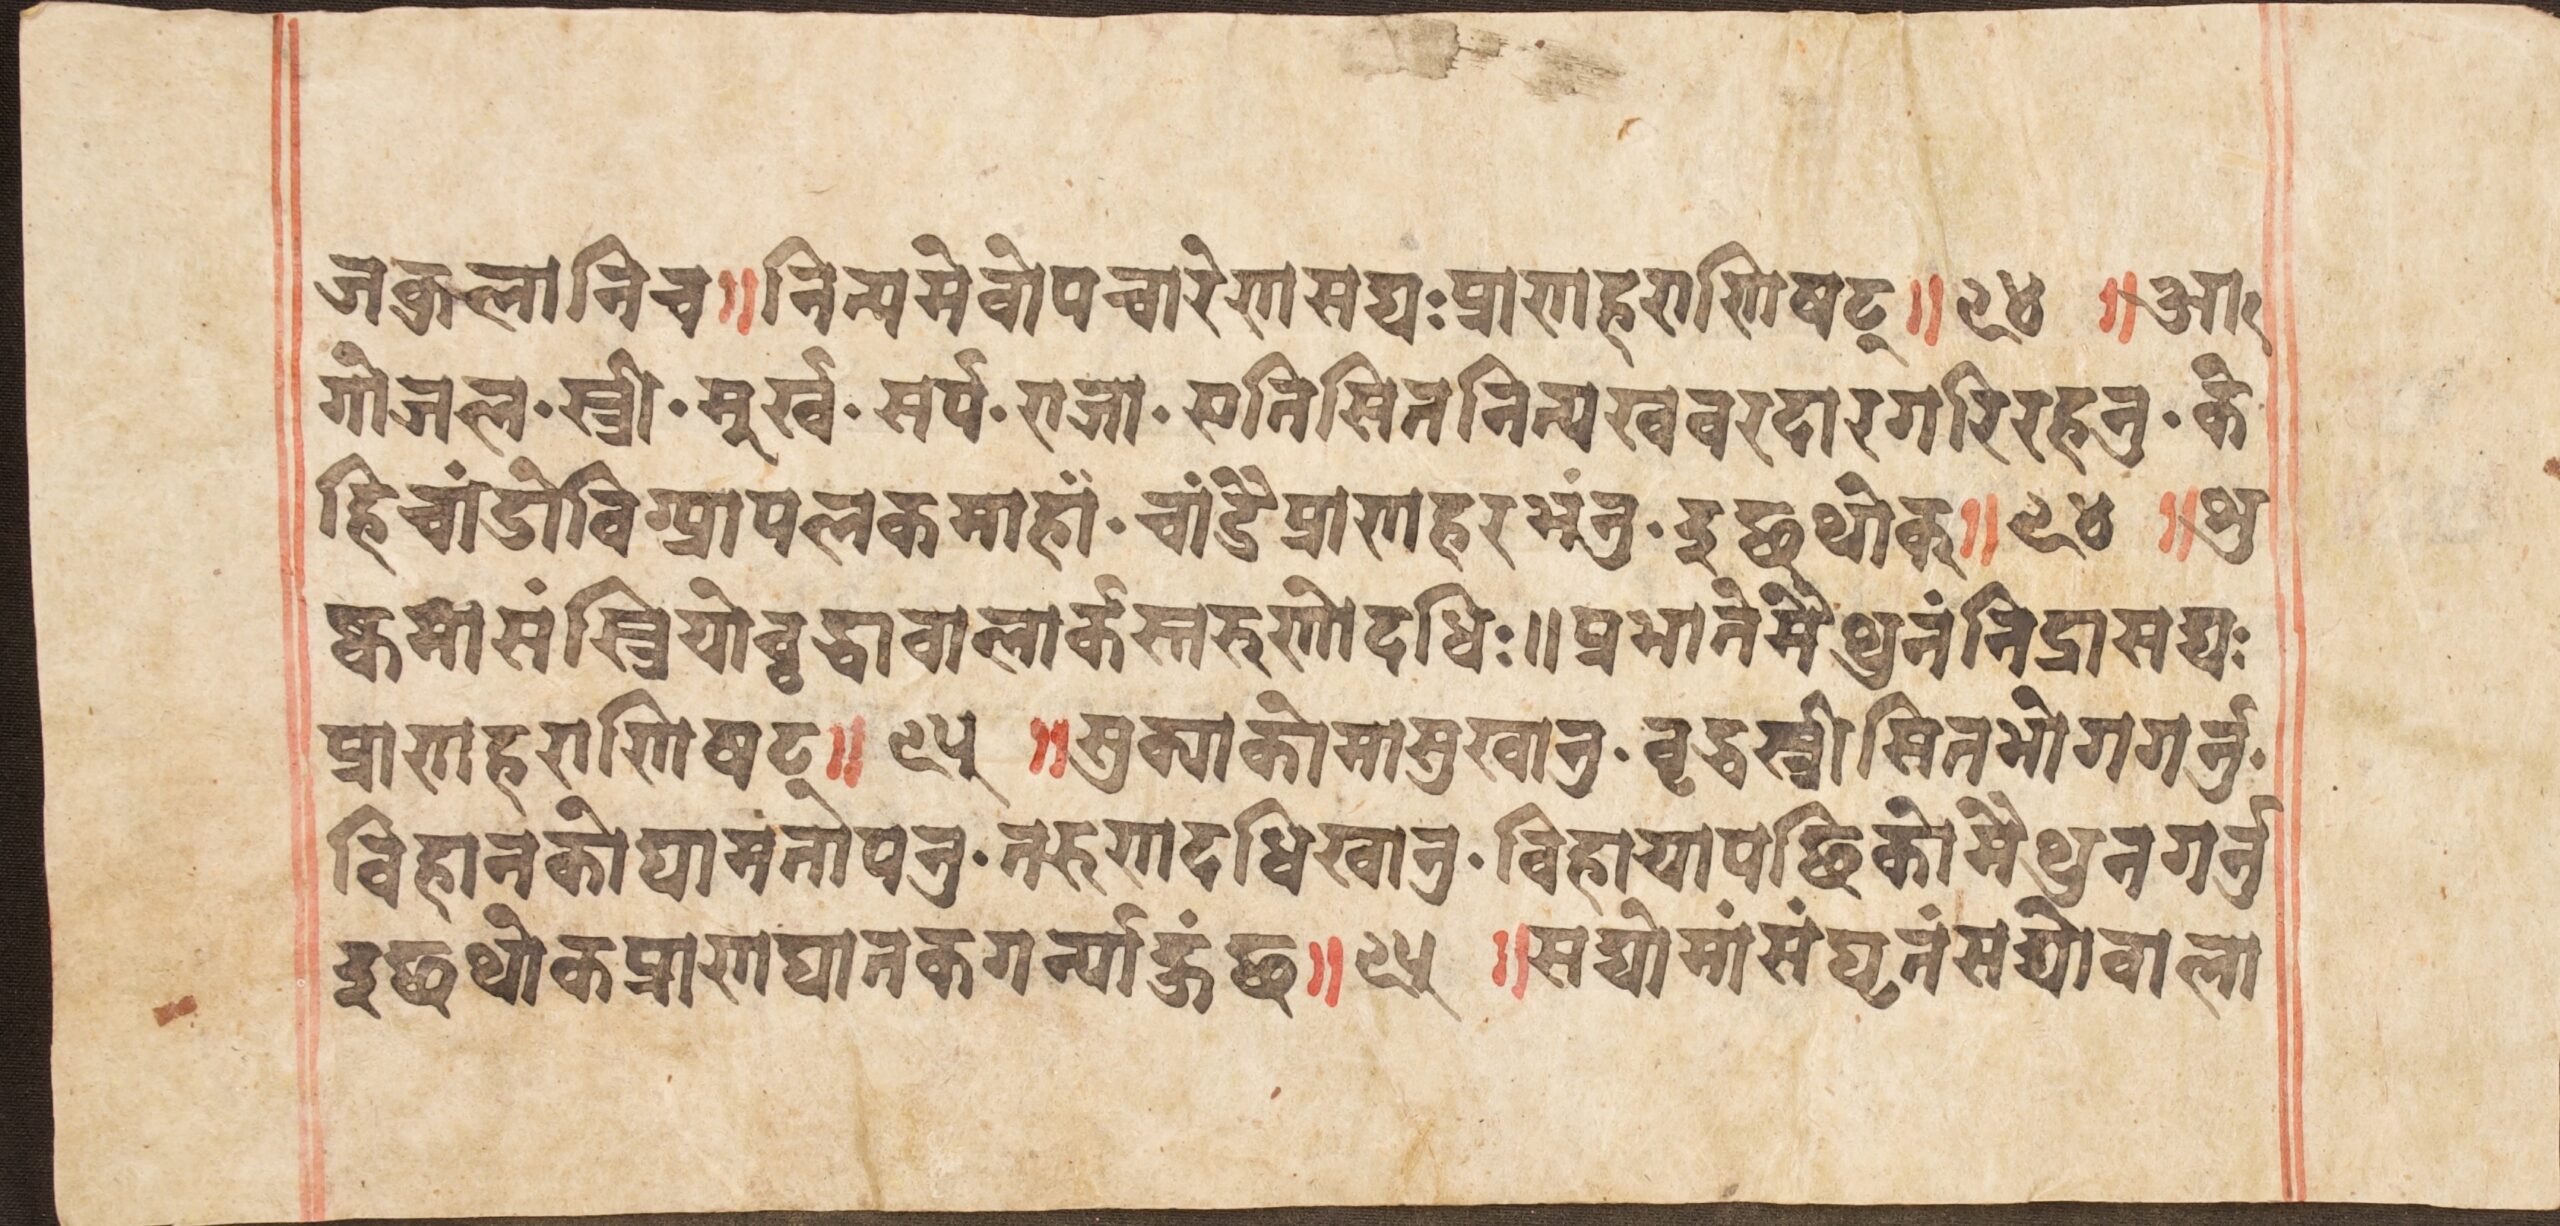 जकुलानिच॥नित्यमेवोपचारेणसद्यःप्राणहराणिषट्॥१४ ॥आ
गोजल·स्त्री·मूर्ख·सर्प·राजा·एतिसितनित्यखवरदारगरिरहनु·के
हिचांडोविग्य्रापलकमाहां·चांडैप्राणहरभंनु·इछथोक्॥१४ ॥शु
ष्कमासंस्त्रियोवृद्धावालार्कस्तरुणोदधिः॥प्रभातेमैथुनंनिद्रासद्यः
प्राणहराणिषट्॥१५ ॥सुक्याकोमासुखानु·वृद्धस्त्रीसितभोगगर्नु·
विहानकोघामंतोपनु·तरुणदधिखानु·विहायापछिकोमैथुनगर्नु
इछथोकप्राणघातकगर्न्याहुंछ॥१५ ॥सद्योमांसंघृतंसद्योवाला